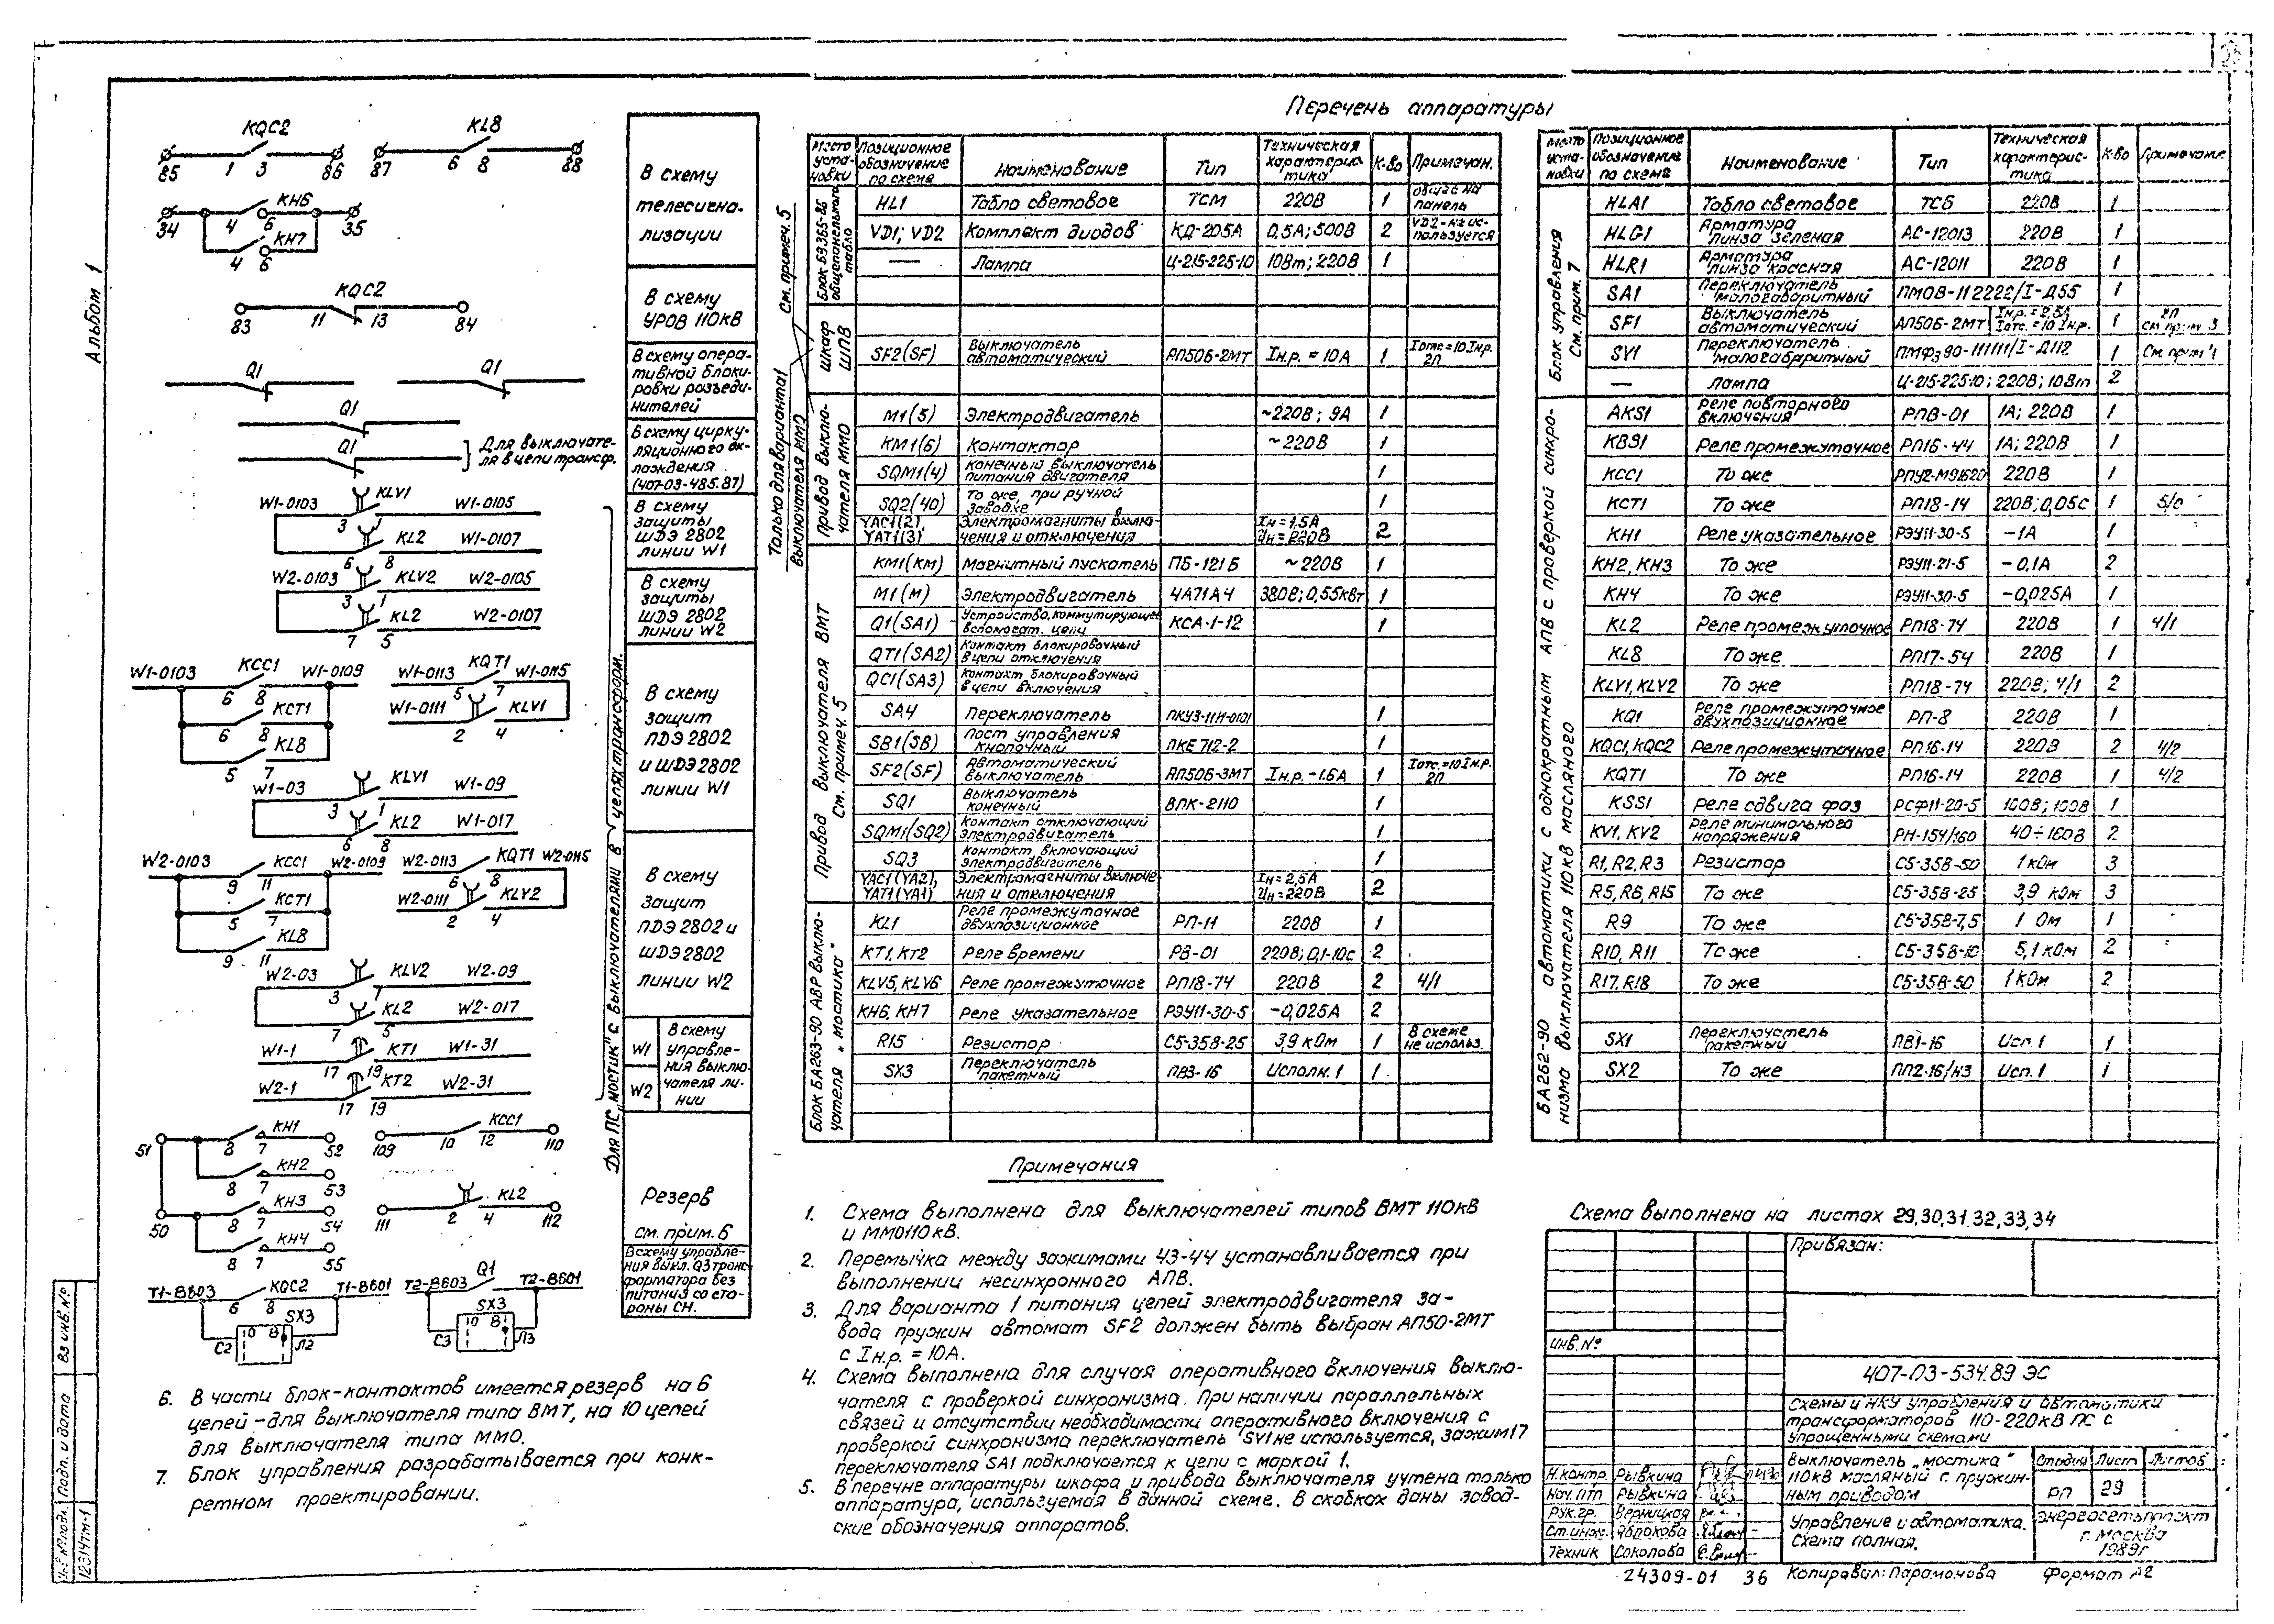 Альбом 1
KQC2
KL8
85 1 3 86 87 6 8 88
KH6
34 4 6 35
KH7
4 6
KQC2
83 11 13 84
Q1 Q1
Q1
Q1
Для выключате-
ля в цепи трансф.
W1-0103 KLV1 W1-0105
3 1
KL2 W1-0107
6 8
W2-0103 KLV2 W2-0105
3 1
KL2 W2-0107
7 5
W1-0103 KCC1 W1-0109 W1-0113 KQT1 W1-0115
6 8 5 7
KCT1 W1-0111 KLV1
6 8 2 4
KL8
5 7
W1-03 KLV1 W1-09
3 1
KL2 W1-017
6 8
W2-0103 KCC1 W2-0109 W2-0113 KQT1 W2-0115
9 11 6 8
KCT1 W2-0111 KLV2
5 7 2 4
KL8
9 11
W2-03 KLV2 W2-09
3 1
KL2 W2-017
7 5
W1-1 KT1 W1-31
17 19
W2-1 KT2 W2-31
17 19
51 KH1 52 109 KCC1 110
8 7 10 12
KH2 53
8 7
50 KH3 54 111 KL2 112
8 7 2 4
KH4 55
8 7
T1-B603 KQC2 T1-B601 T2-B603 Q1 T2-B601
6 8
SX3 SX3
C2 0 В Л2 C3 0 В Л3
Для ПС "мостик" с выключателями в цепях трансформ.
В схему
телесигна-
лизации
В схему
УРОВ 110кВ
В схему опера-
тивной блоки-
ровки разъеди-
нителей
В схему цирку-
ляционного ох-
лаждения
(407-03-485.87)
В схему
защиты
ШДЭ 2802
линии W1
В схему
защиты
ШДЭ 2802
линии W2
В схему
защит
ПДЭ 2802
и ШДЭ2802
линии W1
В схему
защит
ПДЭ 2802 и
ШДЭ2802
линии W2
W1
W2
В схему
управле-
ния выклю-
чателя ли-
нии
Резерв
см. прим. 6
В схему управле-
ния выкл. Q3 транс-
форматора без
питания со сто-
роны СН.
Перечень аппаратуры
Только для варианта1
выключателя ММО
См. примеч. 5
Место уста- новки | Позиционное обозначение по схеме | Наименование | Тип | Техническая характерис- тика | К-во | Примечан.
Блок БЭ365-86 общепанельного табло
HL1 Табло световое ТСМ 220В 1 общее на панель
VD1; VD2 Комплект диодов КД-205А 0,5А; 500В 2 VD2-не ис- пользуется
— Лампа Ц-215-225-10 10Вт; 220В 1
Шкаф ШПВ
SF2(SF) Выключатель автоматический АП50Б-2МТ Iн.р. = 10А 1 Iотс=10 Iн.р. 2П
Привод выклю- чателя ММО
М1(5) Электродвигатель ~220В; 9А 1
КМ1(6) Контактор ~220В 1
SQM1(4) Конечный выключатель питания двигателя 1
SQ2(40) То же, при ручной заводке 1
YAC1(2), YAT1(3) Электромагниты вклю- чения и отключения Iн=1,5А Uн=220В 2
Привод выключателя ВМТ
См. примеч. 5
КМ1(КМ) Магнитный пускатель ПБ-121Б ~220В 1
М1(М) Электродвигатель 4А71А4 380В; 0,55кВт 1
Q1(SA1) Устройство, коммутирующее вспомогат. цепи КСА-1-12 1
QT1(SA2) Контакт блокировочный в цепи отключения
QC1(SA3) Контакт блокировочный в цепи включения
SA4 Переключатель ПКУ3-11И-0101 1
SB1(SB) Пост управления кнопочный ПКЕ 712-2 1
SF2(SF) Автоматический выключатель АП50Б-3МТ Iн.р.-1.6А 1 Iотс.=10 Iн.р. 2П
SQ1 Выключатель конечный ВПК-2110 1
SQM1(SQ2) Контакт отключающий электродвигатель 1
SQ3 Контакт включающий электродвигатель 1
YAC1(YA2), YAT1(YA1) Электромагниты включе- ния и отключения Iн=2,5А Uн=220В 2
Блок БА263-90 АВР выклю- чателя "мостика"
KL1 Реле промежуточное двухпозиционное РП-11 220В 1
KT1, KT2 Реле времени РВ-01 220В; 0,1-10с 2
KLV5, KLV6 Реле промежуточное РП18-74 220В 2 4/1
KH6, KH7 Реле указательное РЭУ11-30-5 -0,025А 2
R15 Резистор С5-35В-25 3,9 кОм 1 В схеме не использ.
SX3 Переключатель пакетный ПВ3-16 Исполн. 1 1
Место уста- новки | Позиционное обозначение по схеме | Наименование | Тип | Техническая характерис- тика | К-во | Примечание
Блок управления
См. прим. 7
HLA1 Табло световое ТСБ 220В 1
HLG1 Арматура линза зеленая АС-12013 220В 1
HLR1 Арматура линза красная АС-12011 220В 1
SA1 Переключатель малогабаритный ПМОВ-112222/I-Д55 1
SF1 Выключатель автоматический АП50Б-2МТ Iн.р.=2,5А Iотс.=10 Iн.р. 1 2П см прим 3
SV1 Переключатель малогабаритный ПМФз90-111111/I-Д112 1 См. прим 4
— Лампа Ц-215-225-10; 220В; 10Вт 2
БА262-90 автоматики с однократным АПВ с проверкой синхро-
низма выключателя 110кВ масляного
AKS1 Реле повторного включения РПВ-01 1А; 220В 1
KBS1 Реле промежуточное РП16-44 1А; 220В 1
KCC1 То же РПУ2-М91620 220В 1
KCT1 То же РП18-14 220В; 0,05с 1 5/0
KH1 Реле указательное РЭУ11-30-5 -1А 1
KH2, KH3 То же РЭУ11-21-5 -0,1А 2
KH4 То же РЭУ11-30-5 -0,025А 1
KL2 Реле промежуточное РП18-74 220В 1 4/1
KL8 То же РП17-54 220В 1
KLV1, KLV2 То же РП18-74 220В; 4/1 2
KQ1 Реле промежуточное двухпозиционное РП-8 220В 1
KQC1, KQC2 Реле промежуточное РП16-14 220В 2 4/2
KQT1 То же РП16-14 220В 1 4/2
KSS1 Реле сдвига фаз РСФ11-20-5 100В; 100В 1
KV1, KV2 Реле минимального напряжения РН-154/160 40÷160В 2
R1, R2, R3 Резистор С5-35В-50 1 кОм 3
R5, R6, R15 То же С5-35В-25 3,9 кОм 3
R9 То же С5-35В-7,5 1 Ом 1
R10, R11 То же С5-35В-10 5,1 кОм 2
R17, R18 То же С5-35В-50 1 кОм 2
SX1 Переключатель пакетный ПВ1-16 Исп. 1 1
SX2 То же ПП2-16/Н3 Исп. 1 1
Примечания
1. Схема выполнена для выключателей типов ВМТ 110кВ
и ММО110кВ.
2. Перемычка между зажимами 43-44 устанавливается при
выполнении несинхронного АПВ.
3. Для варианта 1 питания цепей электродвигателя за-
вода пружин автомат SF2 должен быть выбран АП50-2МТ
с Iн.р. = 10А.
4. Схема выполнена для случая оперативного включения выклю-
чателя с проверкой синхронизма. При наличии параллельных
связей и отсутствии необходимости оперативного включения с
проверкой синхронизма переключатель SV1 не используется, зажим 17
переключателя SA1 подключается к цепи с маркой 1.
5. В перечне аппаратуры шкафа и привода выключателя учтена только
аппаратура, используемая в данной схеме. В скобках даны завод-
ские обозначения аппаратов.
6. В части блок-контактов имеется резерв на 6
цепей - для выключателя типа ВМТ, на 10 цепей
для выключателя типа ММО.
7. Блок управления разрабатывается при конк-
ретном проектировании.
Схема выполнена на листах 29,30,31,32,33,34
Привязан:
Инв. №
407-03-534.89 ЭС
Схемы и НКУ управления и автоматики
трансформаторов 110-220кВ ПС с
упрощенными схемами
Выключатель "мостика"
110кВ масляный с пружин-
ным приводом
Стадия Лист Листов
РП 29
Управление и автоматика.
Схема полная.
Энергосетьпроект
г. Москва
1989г
Н.контр. Рывкина
Нач. ПТП Рывкина
Рук.гр. Верницкая
Ст.инж. Яблокова
Техник Соколова
24309-01 36 Копировал: Парамонова Формат А2
Инв.№ подл. Подп. и дата Вз инв. №
12314тм-1